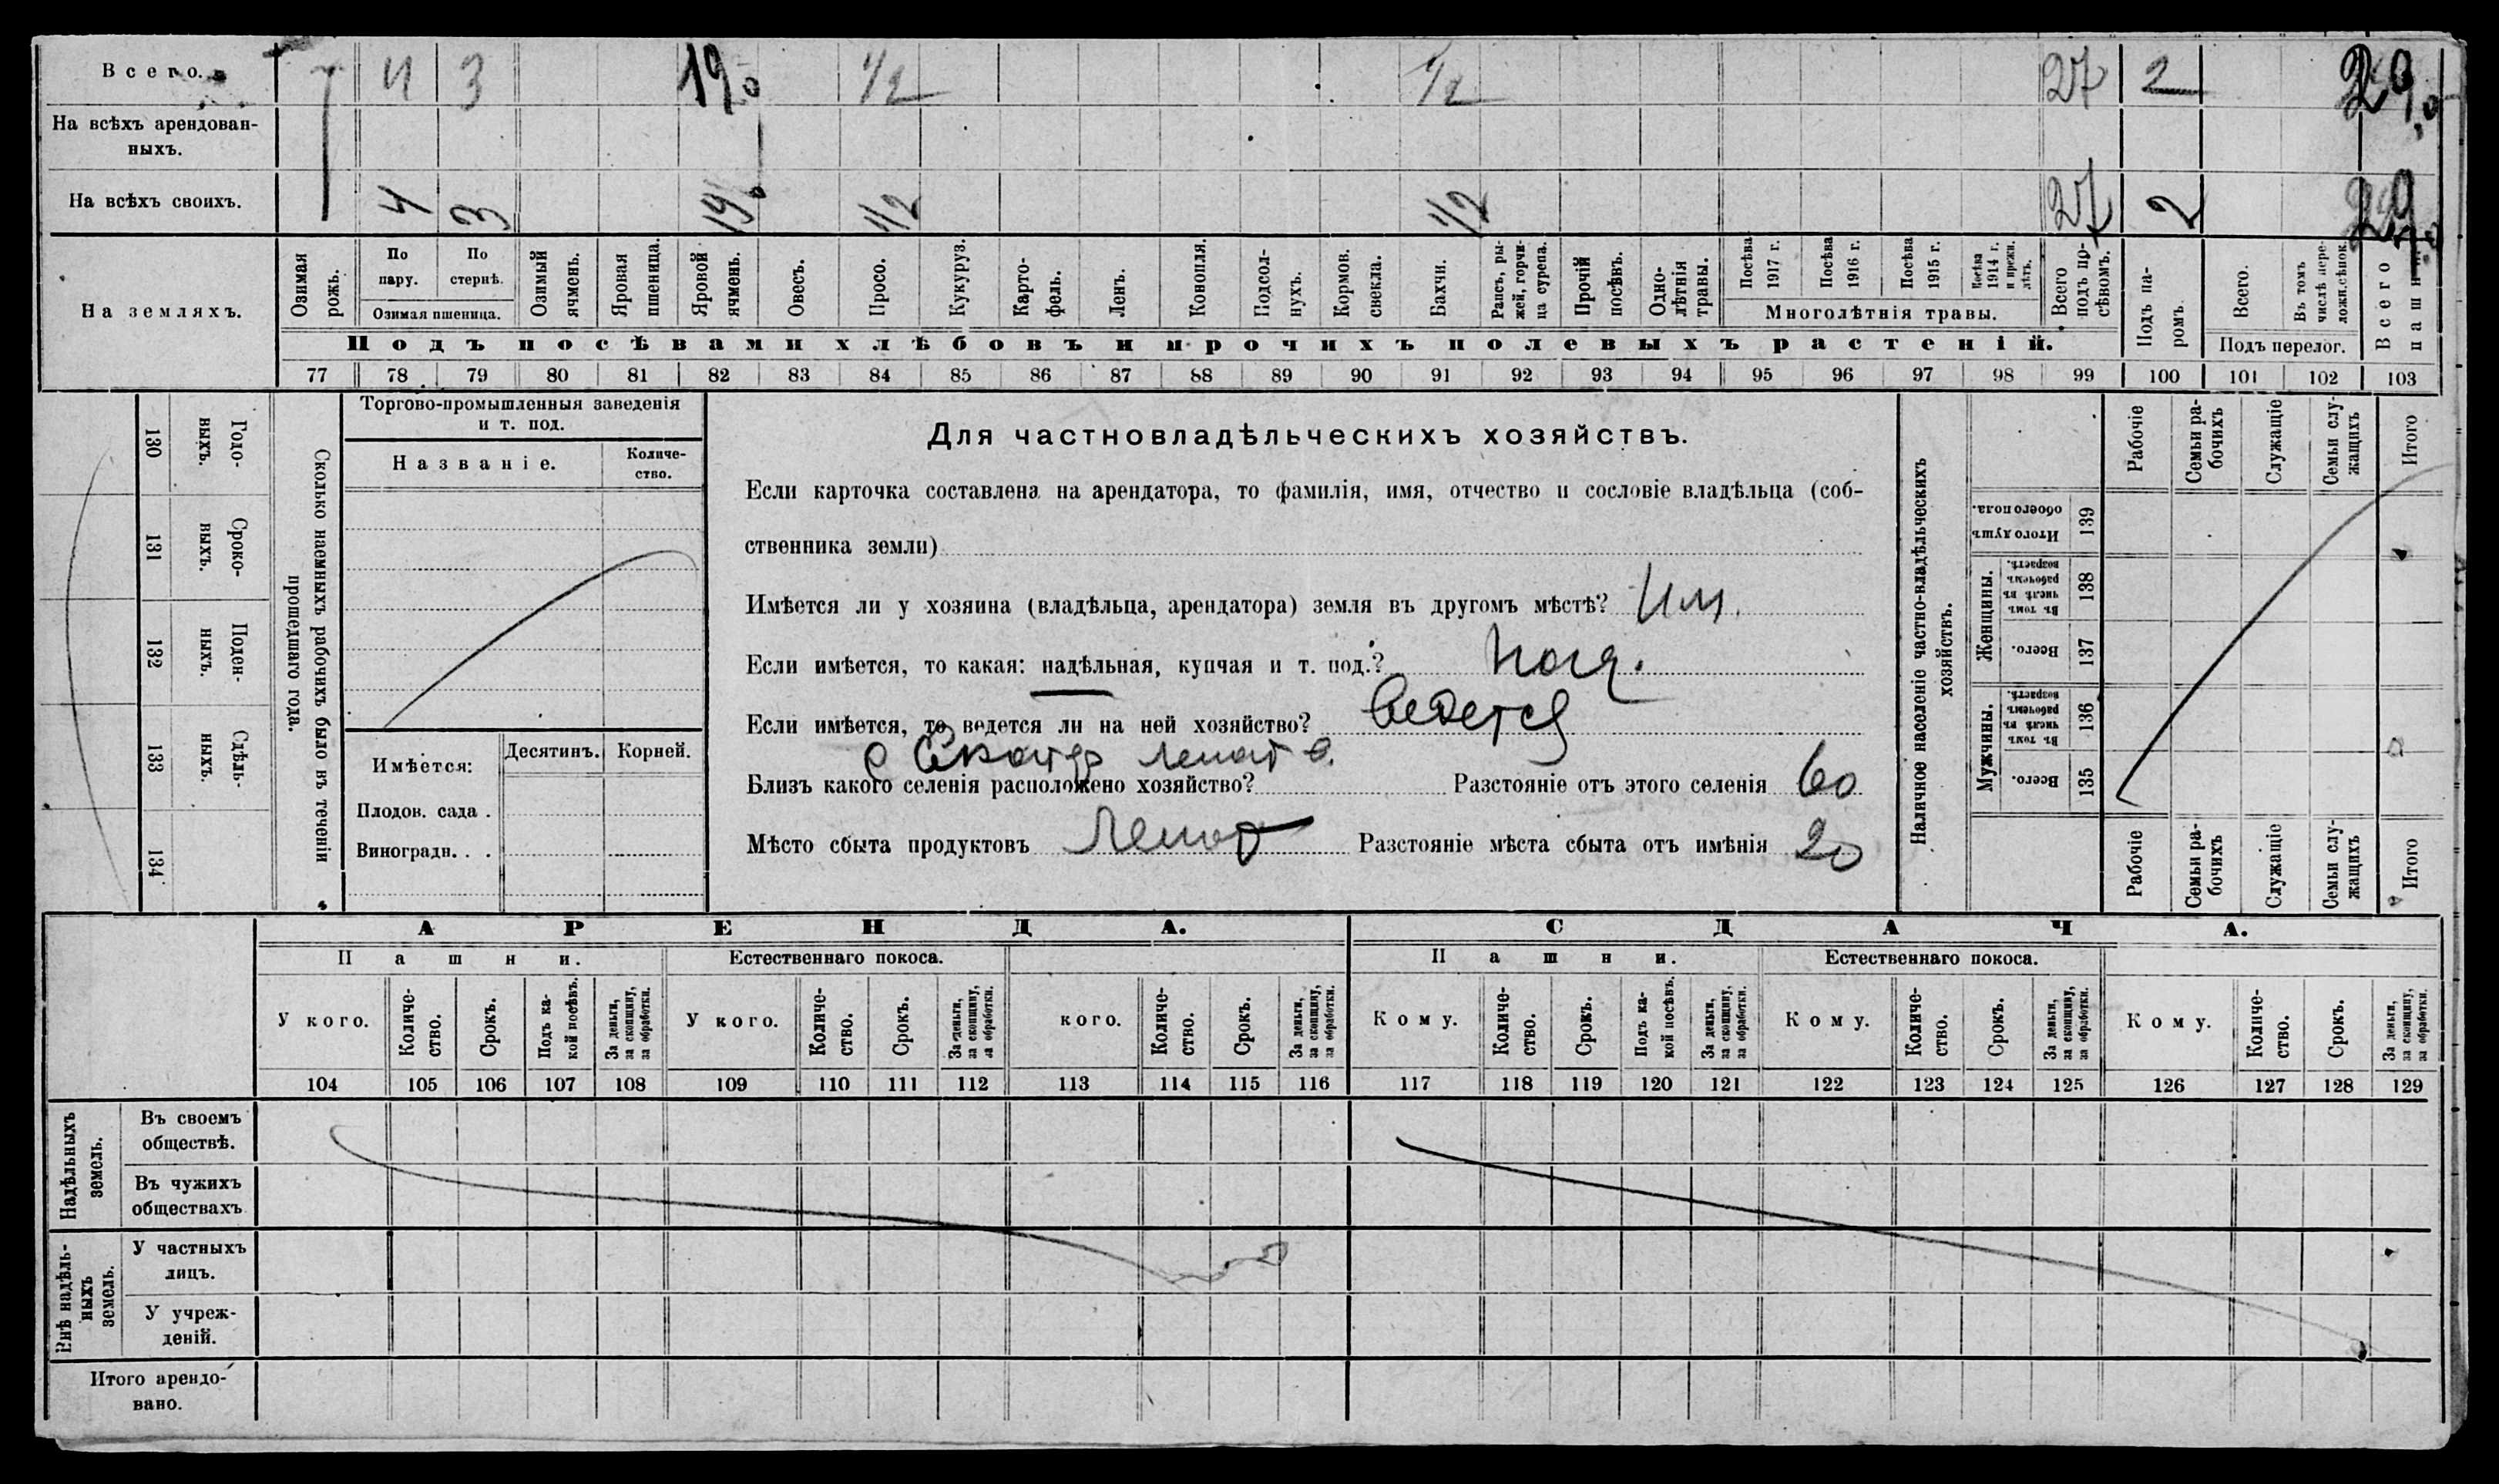 Всего. 4 3 19,0 1/2 1/2 27 2 29,0
На всѣхъ арендован-
ныхъ.
На всѣхъ своихъ. 4 3 19,0 1/2 1/2 27 2 29,0
На земляхъ.
Озимая рожь.
По пару.
По стернѣ.
Озимая пшеница.
Озимый ячмень.
Яровая пшеница.
Яровой ячмень.
Овесъ.
Просо.
Кукуруз.
Карто-
фель.
Ленъ.
Конопля.
Подсол-
нухъ.
Кормов. свекла.
Бахчи.
Рапсъ, ры-
жей, горчи-
ца сурепа.
Прочій посѣвъ.
Одно-
лѣтнія травы.
Посѣва 1917 г.
Посѣва 1916 г.
Посѣва 1915 г.
Посѣва 1914 г. и прежн. лѣтъ.
Многолѣтнія травы.
Всего подъ по-
сѣвомъ.
Подъ па-
ромъ.
Всего.
Въ томъ числѣ пере-
ложн. сѣнок.
Подъ перелог.
Всего пашни.
Подъ посѣвами хлѣбовъ и прочихъ полевыхъ растеній.
77 78 79 80 81 82 83 84 85 86 87 88 89 90 91 92 93 94 95 96 97 98 99 100 101 102 103
130 Годо-
ныхъ.
131 Сроко-
ныхъ.
132 Поден-
ныхъ.
133 Сдѣль-
ныхъ.
134
Сколько наемныхъ рабочихъ было въ теченіи
прошедшаго года.
Торгово-промышленныя заведенія
и т. под.
Названіе.
Количе-
ство.
Имѣется: Десятинъ. Корней.
Плодов. сада .
Виноградн. . .
Для частновладѣльческихъ хозяйствъ.
Если карточка составлена на арендатора, то фамилія, имя, отчество и сословіе владѣльца (соб-
ственника земли)
Имѣется ли у хозяина (владѣльца, арендатора) земля въ другомъ мѣстѣ? Им.
Если имѣется, то какая: надѣльная, купчая и т. под.? над.
Если имѣется, то ведется ли на ней хозяйство? ведется
Близъ какого селенія расположено хозяйство? Разстояніе отъ этого селенія 60
Мѣсто сбыта продуктовъ Разстояніе мѣста сбыта отъ имѣнія 20
Наличное населеніе частно-владѣльческихъ
хозяйствъ.
Рабочіе
Семьи ра-
бочихъ
Служащіе
Семьи слу-
жащихъ
Итого
Итого душъ обоего пола. 139
Женщины.
Въ томъ числѣ въ рабочемъ возрастѣ. 138
Всего. 137
Мужчины.
Въ томъ числѣ въ рабочемъ возрастѣ. 136
Всего. 135
Рабочіе
Семьи ра-
бочихъ
Служащіе
Семьи слу-
жащихъ
Итого
АРЕНДА. СДАЧА.
Пашни. Естественнаго покоса. Пашни. Естественнаго покоса.
У кого.
Количе-
ство.
Срокъ.
Подъ ка-
кой посѣвъ.
За деньги,
за скопщину,
за обработки.
У кого.
Количе-
ство.
Срокъ.
За деньги,
за скопщину,
за обработки.
кого.
Количе-
ство.
Срокъ.
За деньги,
за скопщину,
за обработки.
Кому.
Количе-
ство.
Срокъ.
Подъ ка-
кой посѣвъ.
За деньги,
за скопщину,
за обработки.
Кому.
Количе-
ство.
Срокъ.
За деньги,
за скопщину,
за обработки.
Кому.
Количе-
ство.
Срокъ.
За деньги,
за скопщину,
за обработки.
104 105 106 107 108 109 110 111 112 113 114 115 116 117 118 119 120 121 122 123 124 125 126 127 128 129
Надѣльныхъ
земель.
Въ своемъ
обществѣ.
Въ чужихъ
обществахъ
Внѣ надѣль-
ныхъ
земель.
У частныхъ
лицъ.
У учреж-
деній.
Итого арендо-
вано.